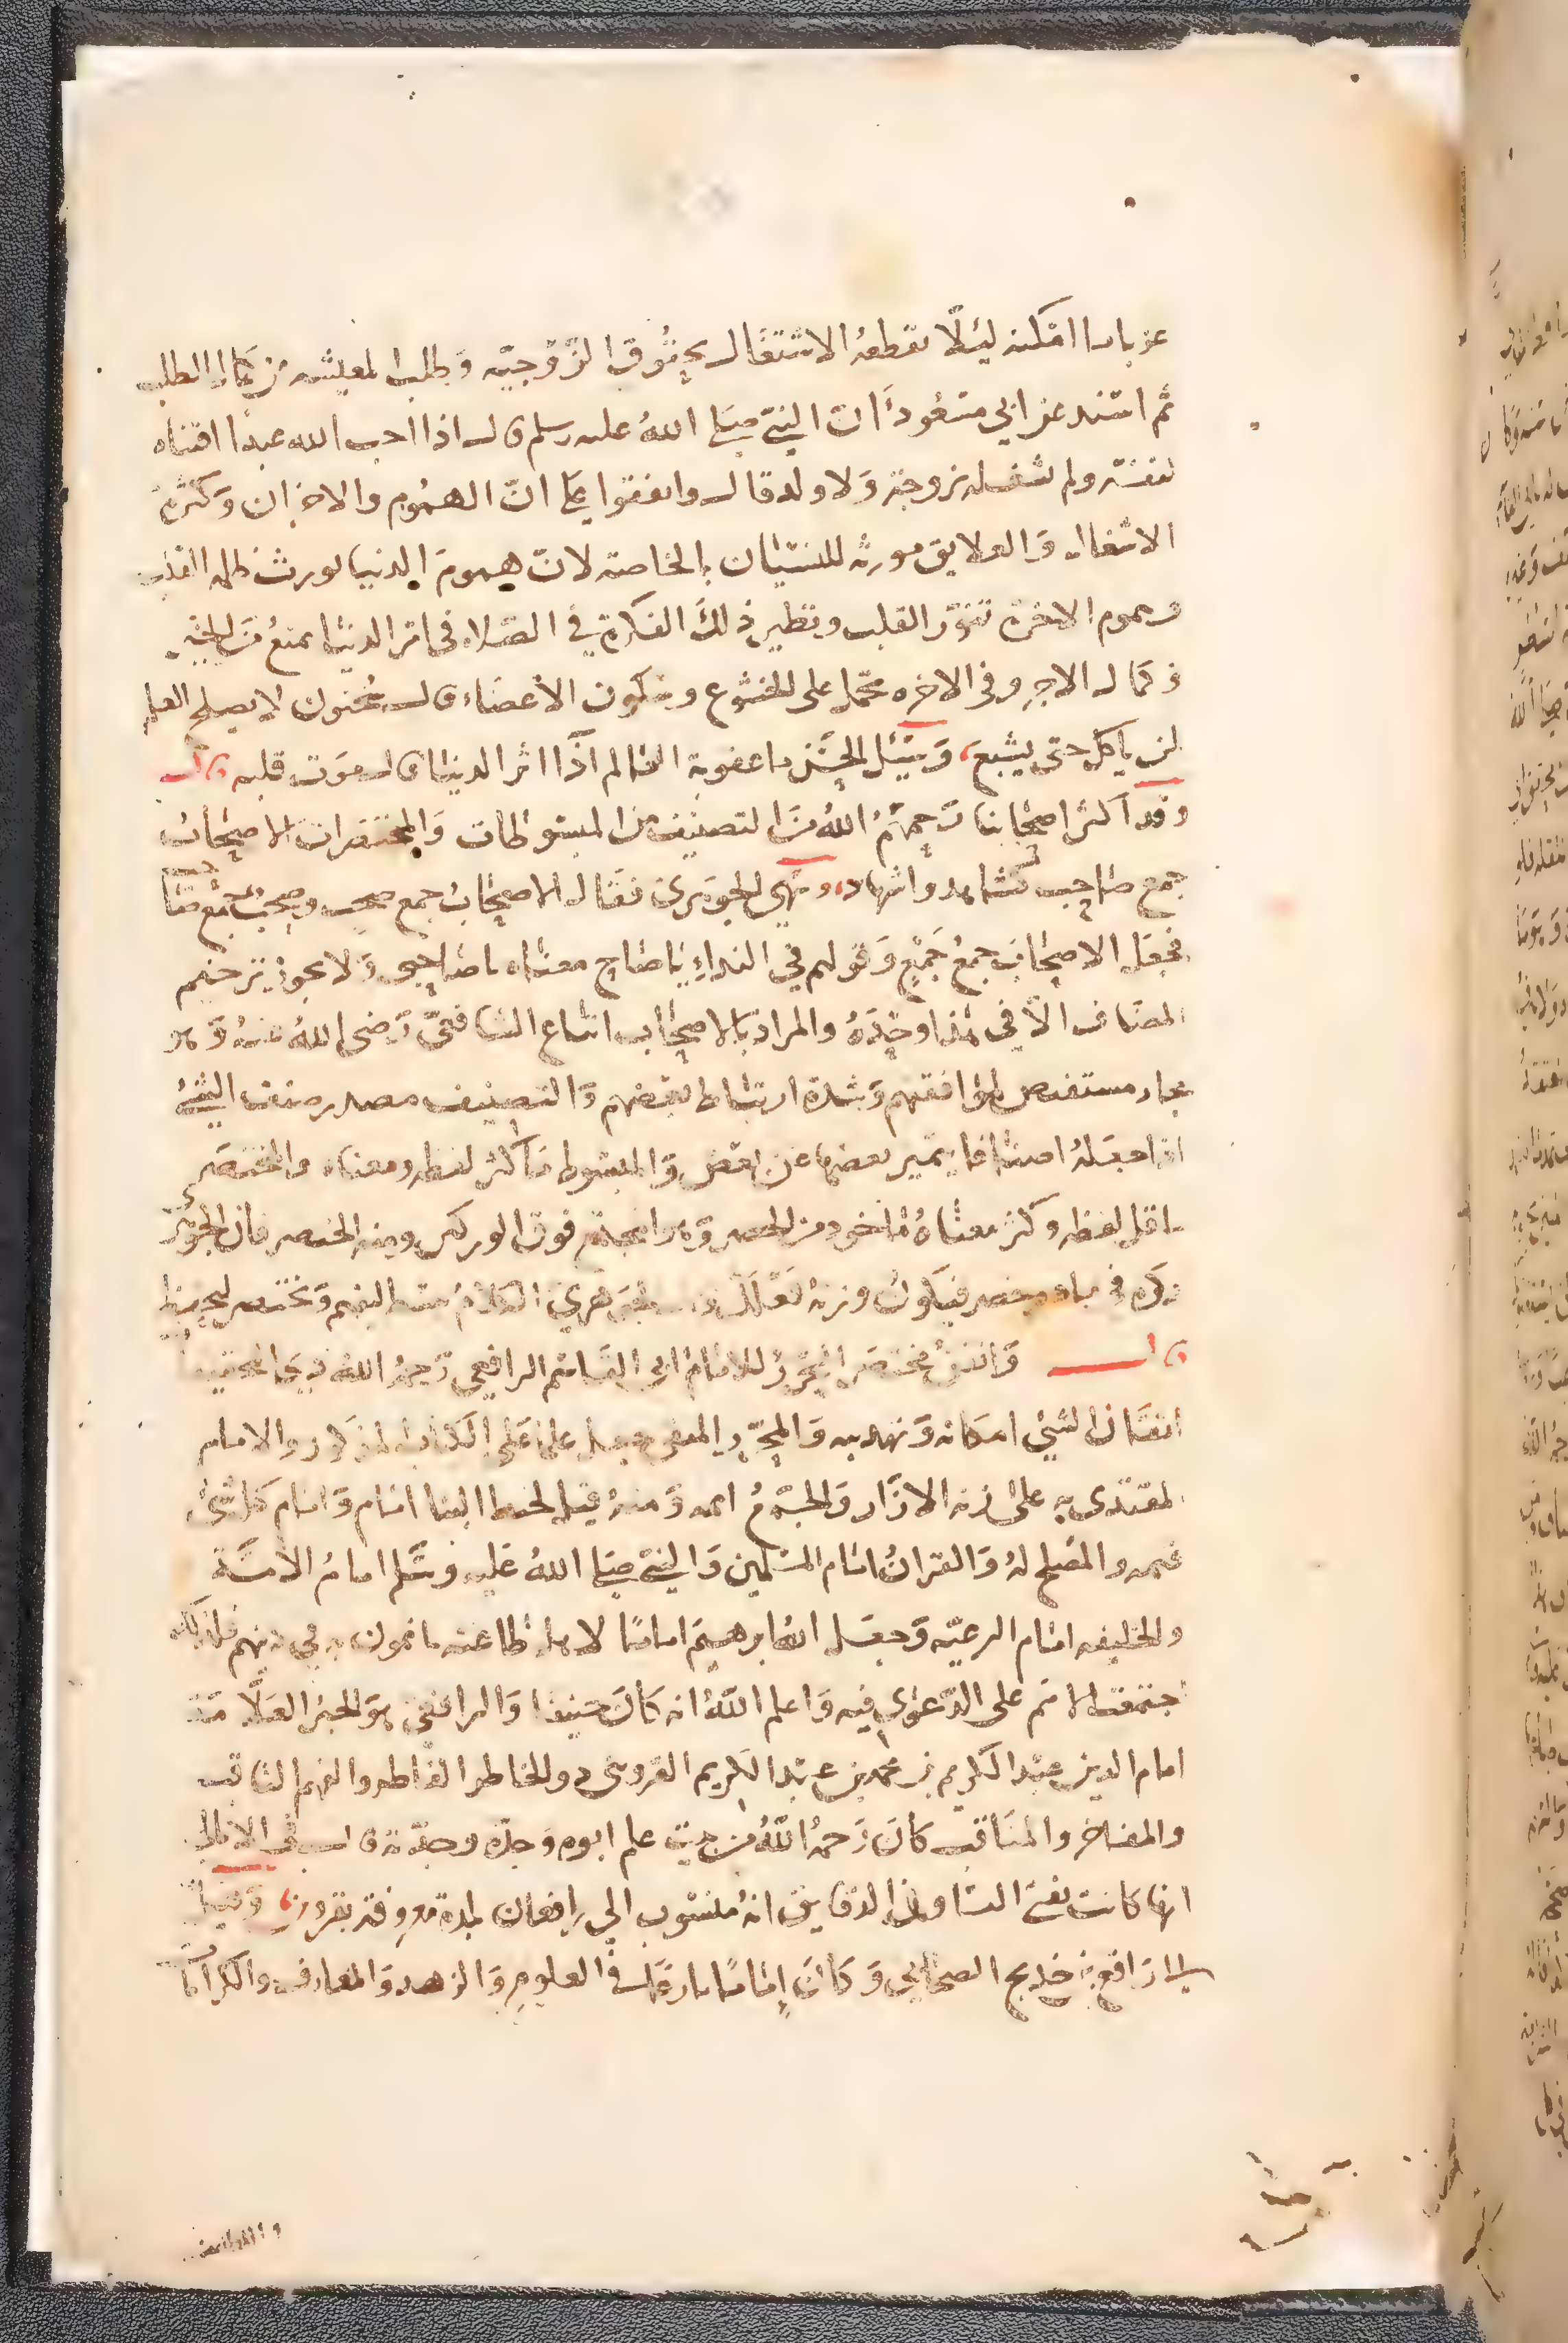 عزبا ما امكنه ليئلا يقطعه الاشتغال بحقوق الزوجيه وطلب المعيشه عن كمال الطلب
ثم اسند عن ابي مسعود ان النبي صلى الله عليه وسلم قال اذا احب الله عبدا اقتناه
لنفسه ولم يشغله بزوجة ولا ولد قال واتفقوا على ان الهموم والاحزان وكثرة
الاشغال والعلايق مورثه للنسيان بالخاصة لان هموم الدنيا تورث ظلمه القلب
وهموم الاخرة تنور القلب ونظير ذلك الفكرة في الصلاه في امر الدنيا يمنع من
وكمال الاجر وفي الاخره تحمل على الخشوع وسكون الأعضاء قال سحنون لا يصلح العلم
لمن ياكل حتى يشبع، وسئل الحسن ما عقوبة العالم اذا اثر الدنيا قال موت قلبه قال
وقد اكثر اصحابنا رحمهم الله من التصنيف من المبسوطات والمختصرات الاصحاب
جمع صاحب كشاهد واشهاد، ونهي الجوهري فقال الاصحاب جمع صحب وصحب جمع صاحب
فجعل الاصحاب جمع جمع وقولهم في النداء يا صاح معناه يا صاحبي ولا يجوز ترخيم
المضاف الا في هذا وحده والمراد بالاصحاب اتباع الشافعي رضي الله عنه وهو
مجاز مستفيض لموافقتهم وشدة ارتباط بعضهم والتصنيف مصدر صنف الشيء
اذا جعله اصنافا يتميز بعضها عن بعض والمبسوط ما كثر لفظه ومعناه والمختصر
ما قل لفظه وكثر معناه ماخوذ من الخصر وهو المجتمع فوق الوركين ومنه الخنصر فان الجوهري
ذكره في مادة خصر فيكون وزنه فنعلل الكلام يبسط ليفهم ويختصر ليحفظ
قال واتقن مختصر المحرر للامام ابي القاسم الرافعي رحمه الله ذي التحقيقات
اتقان الشي امكانه وتهذيبه والمحرر المنقى جعل علما على الكتاب المذكور والامام
المقتدى به على زنه الازار والجمع ايمه ومنه قيل لخيط البنا امام وامام كل شيء
قيمه والمصلح له والقران امام المسلمين والنبي صلى الله عليه وسلم امام الامة
والخليفه امام الرعيه وجعل الله ابرهيم اماما لاهل طاعته ياتمون به في دينهم فلذلك
اجتمعت الامم على الدعوى فيه واعلم الله انه كان حنيفا والرافعي هو الحبر العلامة
امام الدين عبد الكريم بن محمد بن عبد الكريم القزويني ذو الخاطر العاطر والفهم الثاقب
والمفاخر والمناقب كان رحمه الله من بيت علم ابوه وجده وجدته قال في الامالي
انها كانت تفتي النسا وفي الدقايق انه منسوب الي رافعان بلدة معروفة بقزوين وقيل
الى رافع بن خديج الصحابي وكان إماما بارعا في العلوم والزهد والمعارف والكرامات